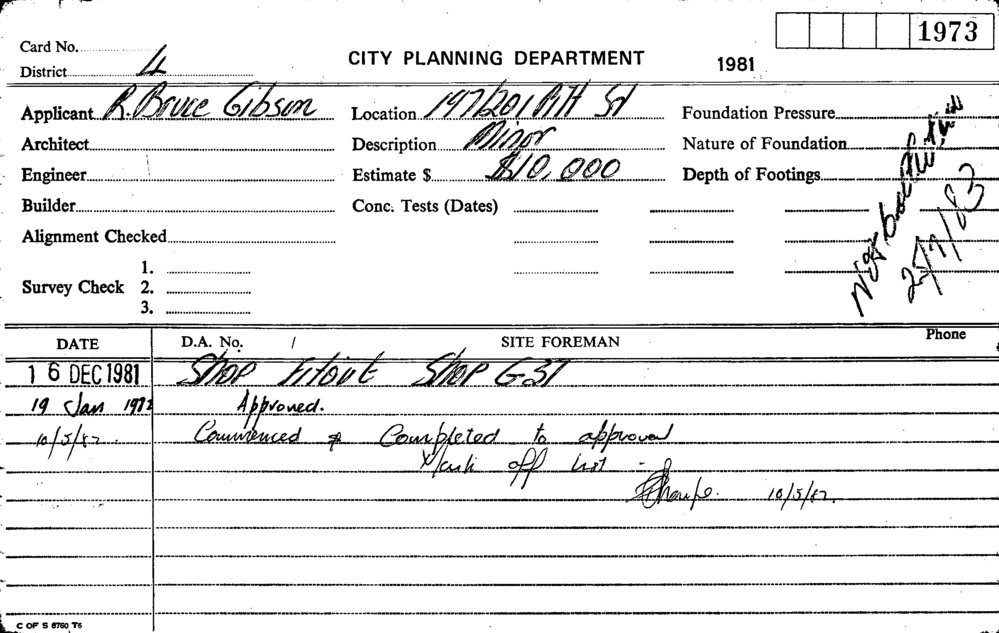 1973
Card No.
CITY PLANNING DEPARTMENT 1981
District 4
Applicant R. Bruce Gibson Location 197/201 Pitt St Foundation Pressure
Architect Description Minor Nature of Foundation
Engineer Estimate $ $10,000 Depth of Footings
Builder Conc. Tests (Dates)
Alignment Checked
25/7/83
1.
Survey Check 2.
3.
DATE D.A. No. / SITE FOREMAN Phone
16 DEC 1981 Shop Fitout Shop G31
19 Jan Approved.
Commenced & Completed to approval
Mark off list
C OF S 8760 T6